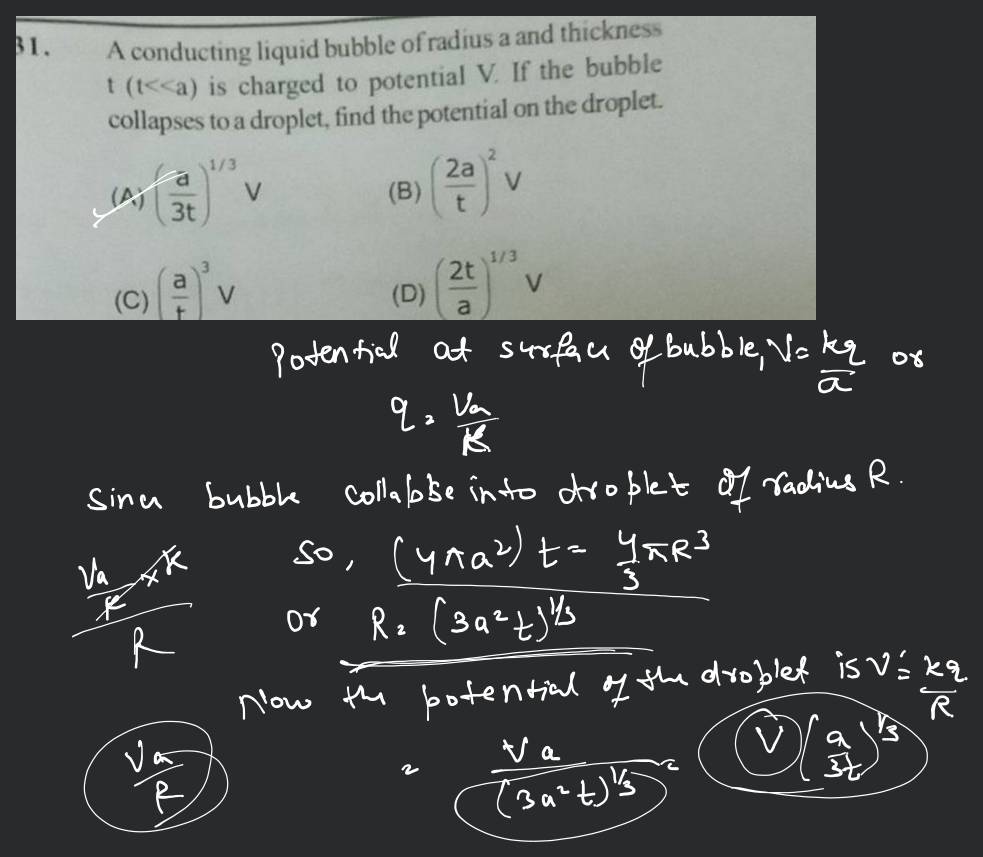 31. A conducting liquid bubble of radius a and thickness
t (t<<a) is charged to potential V. If the bubble
collapses to a droplet, find the potential on the droplet.
(A) (a/3t)^1/3 V (B) (2a/t)^2 V
(C) (a/t)^3 V (D) (2t/a)^1/3 V
Potential at surface of bubble, V = kq/a or
q = Va/K
Since bubble collapse into droplet of radius R.
Va/K × K / R
so, (4πa²) t = 4/3 πR³
or R = (3a²t)^1/3
Now the potential of the droplet is V' = kq/R
Va/R
= Va/(3a²t)^1/3 = V (a/3t)^1/3